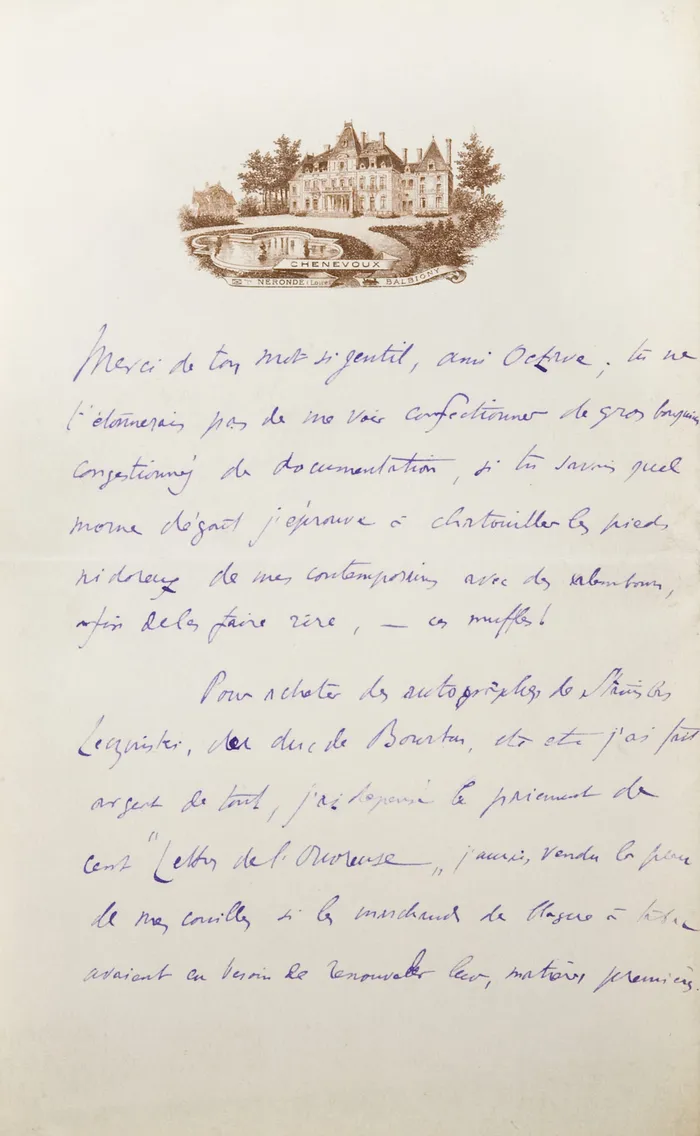 CHENEVOUX
NÉRONDE (Loire) BALBIGNY
Merci de ton mot si gentil, ami Octave ; tu ne
t'étonnerais pas de me voir confectionner de gros bouquins
congestionnés de documentation, si tu savais quel
morne dégoût j'éprouve à chatouiller les pieds
nidoreux de mes contemporains avec des calembours,
afin de les faire rire, — ces muffles !
Pour acheter des autographes de Stanislas
Leczinski, du duc de Bourbon, etc etc j'ai fait
argent de tout, j'ai dépensé le paiement de
cent "Lettres de l'Ouvreuse„ j'aurais vendu la peau
de mes couilles si les marchands de blagues à tabac
avaient eu besoin de renouveler leurs matières premières.